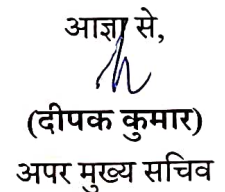 आज्ञा से,
(दीपक कुमार)
अपर मुख्य सचिव